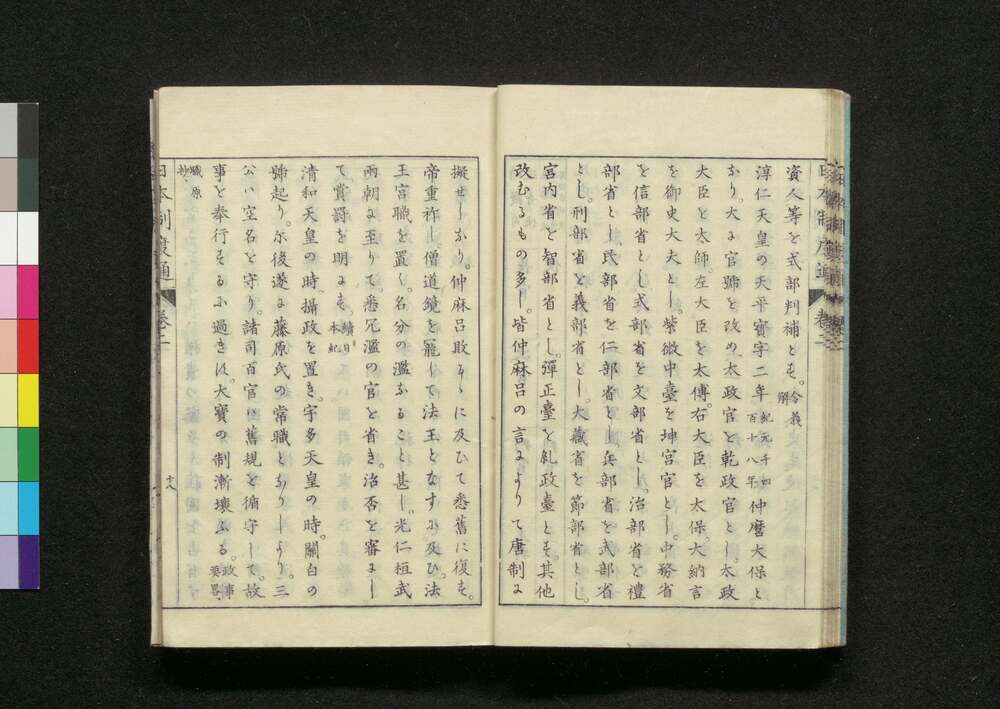 資人等を式部判補とす。令義解
淳仁天皇の天平寶字二年紀元千四百十八年仲麿大保と
なり。大に官號を改め。太政官を乾政官とし。太政
大臣を太師。左大臣を太傅。右大臣を太保。大納言
を御史大夫とし。紫微中臺を坤宮官とし。中務省
を信部省とし式部省を文部省とし。治部省を禮
部省とし民部省を仁部省とし兵部省を武部省
とし。刑部省を義部省とし。大藏省を節部省とし。
宮内省を智部省とし。彈正臺を糺政臺とす。其他
改むるもの多し。皆仲麻呂の言によりて唐制に
擬せしなり。仲麻呂敗るゝに及ひて悉舊に復す。
帝重祚し僧道鏡を寵して法王となすに及ひ。法
王宮職を置く。名分の濫なること甚し。光仁桓武
兩朝に至りて。悉冗濫の官を省き。治否を審にし
て。賞罰を明にす。續日本紀
清和天皇の時。攝政を置き。宇多天皇の時。關白の
號起り。尓後遂に藤原氏の常職となりしより。三
公ハ空名を守り。諸司百官ハ舊規を循守して。故
事を奉行するに過きす。大寶の制漸壞ふる。政事要畧、
職原抄、
日本制度通
卷二
十八